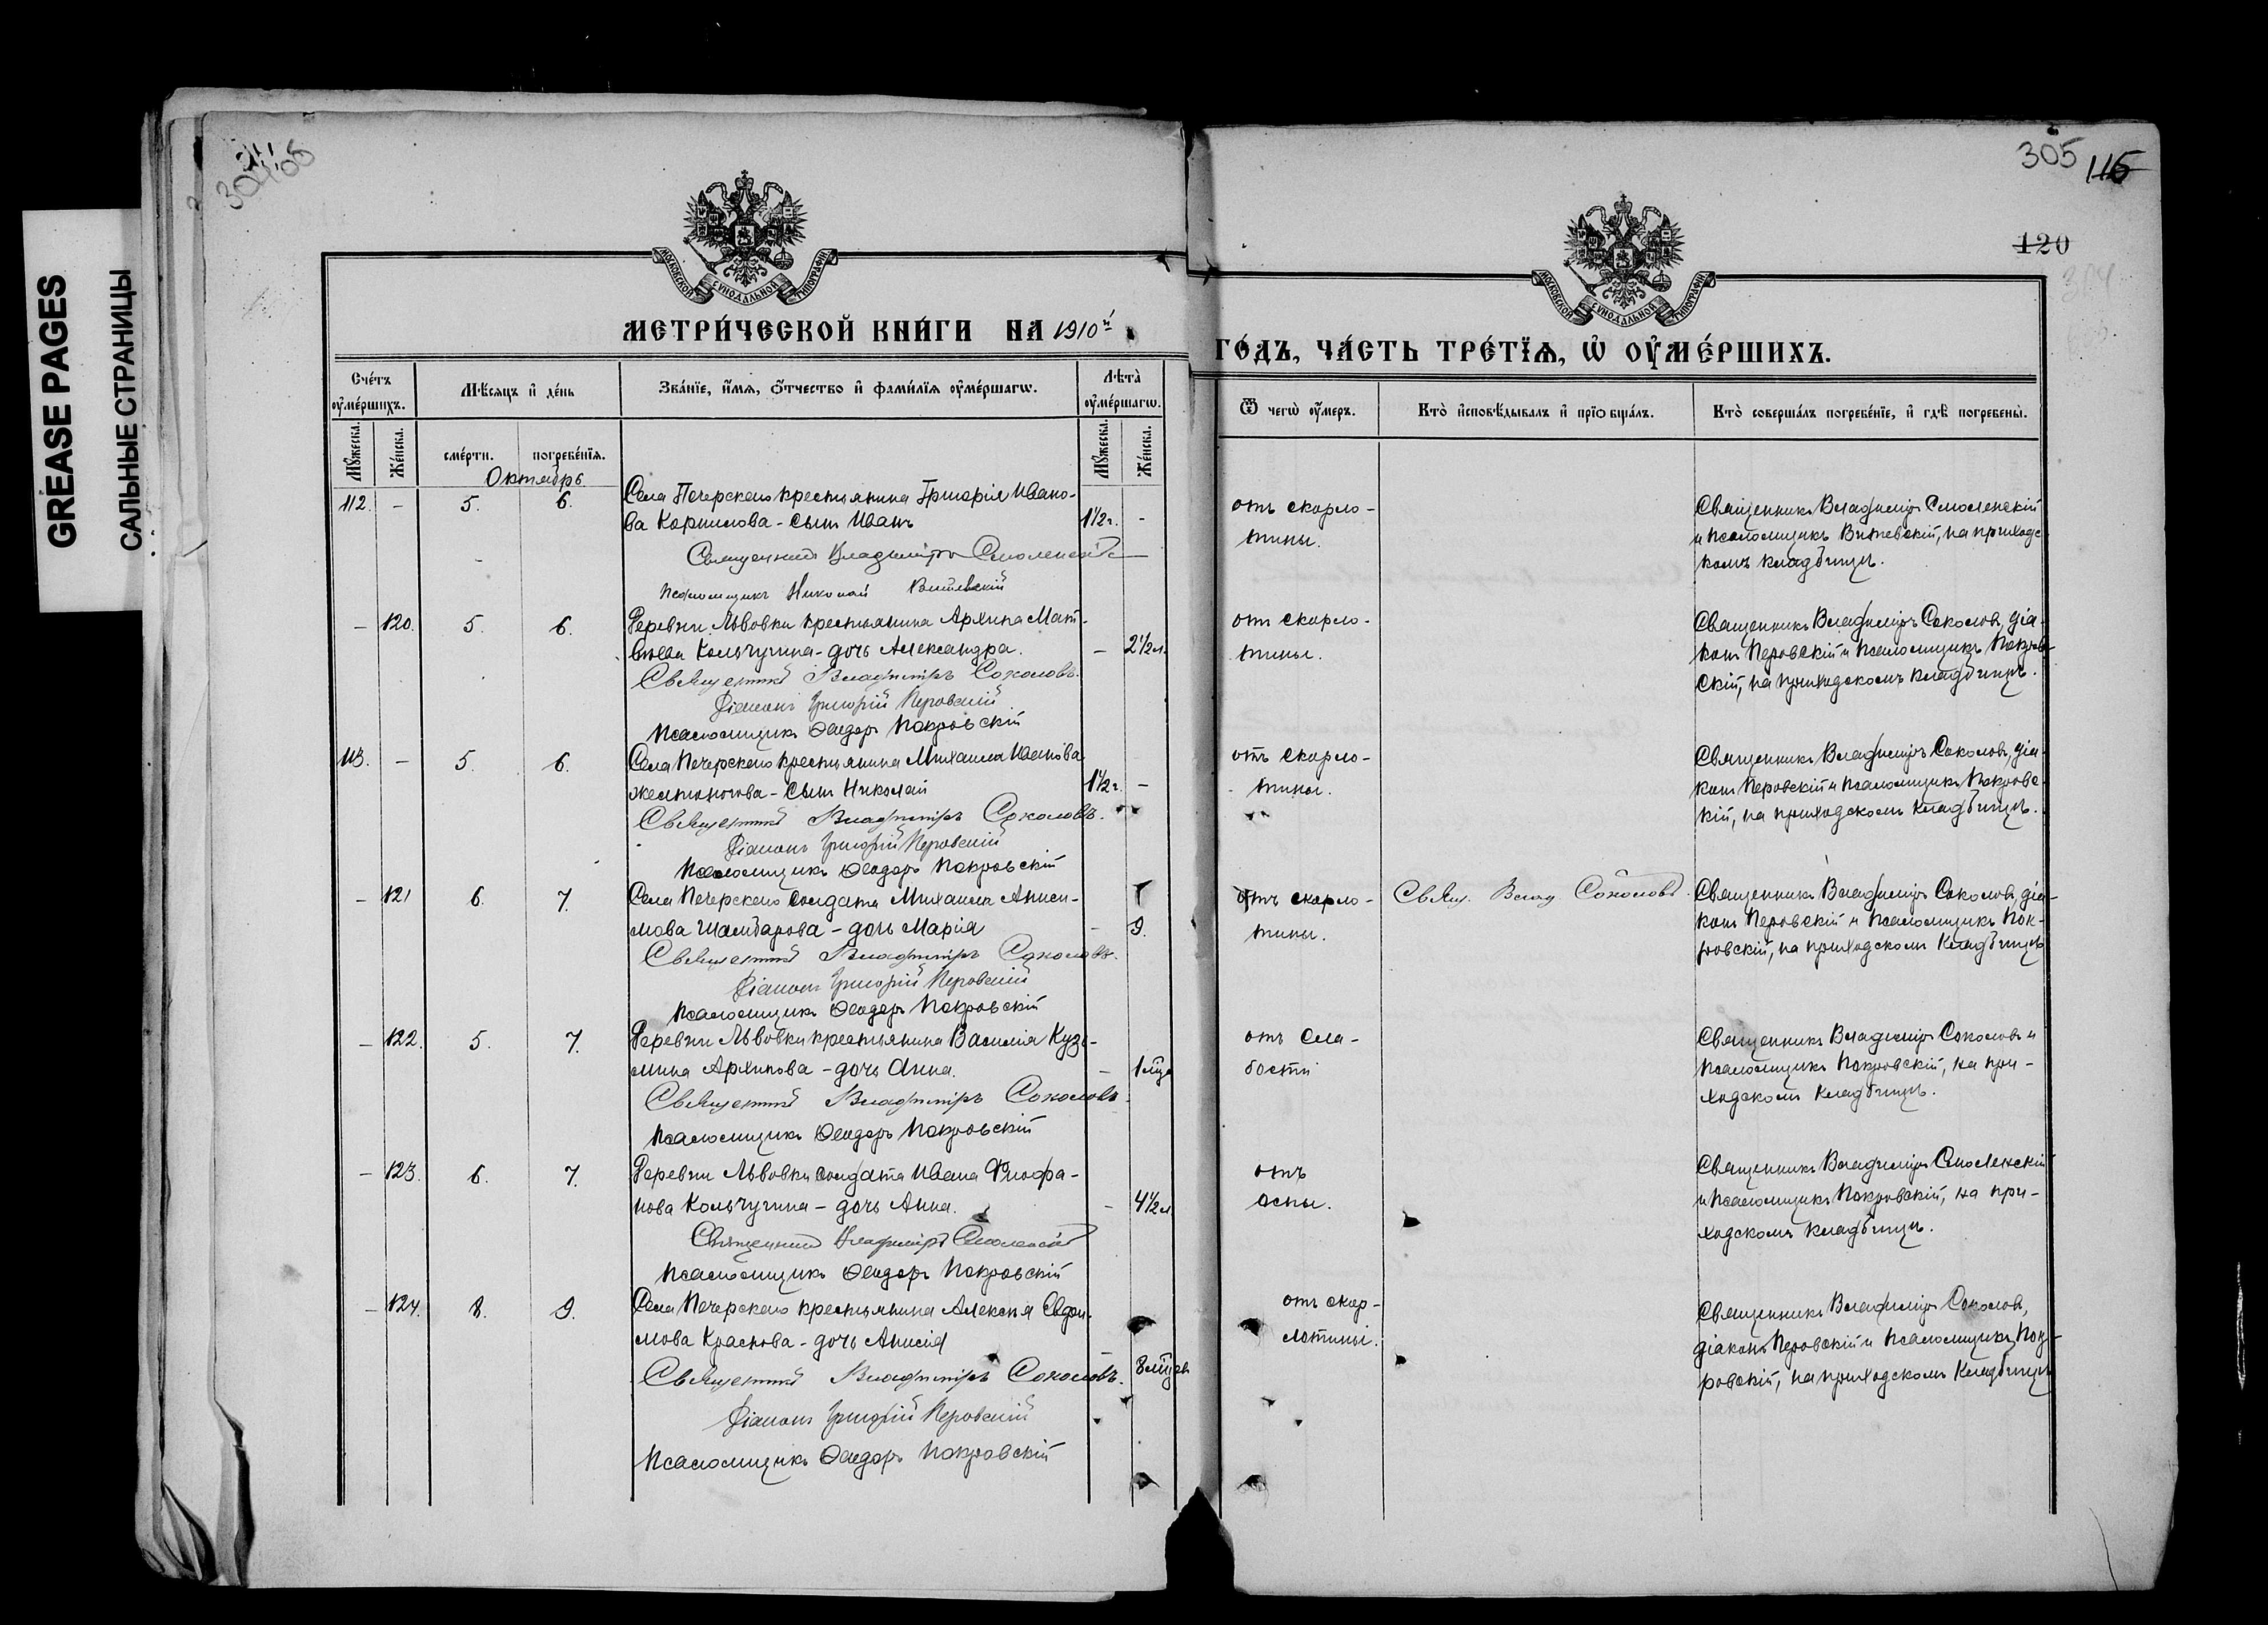 GREASE PAGES
САЛЬНЫЕ СТРАНИЦЫ
305
115
120
МОСКОВСКОЙ СѴНОДАЛЬНОЙ ТИПОГРАФІИ
МОСКОВСКОЙ СѴНОДАЛЬНОЙ ТИПОГРАФІИ
МЕТРИ́ЧЕСКОЙ КНИ́ГИ НА 1910й
ГО́ДЪ, ЧА́СТЬ ТРЕ́ТЇѦ, Ѽ ОУ҆МЕ́РШИХЪ.
Сче́тъ оу҆ме́ршихъ.
Мꙋ́жеска.
Же́нска.
Мѣ́сяцъ и҆ де́нь
сме́рти.
погребе́нїѧ.
Зва́нїе, и҆́мѧ, ѻ҆́тчество и҆ фами́лїѧ оу҆ме́ршагѡ.
Лѣта̀ оу҆ме́ршагѡ.
Мꙋ́жеска.
Же́нска.
Ѿ чегѡ̀ оу҆́меръ.
Кто̀ и҆сповѣ́дывалъ и҆ прїѻбща́лъ.
Кто̀ соверша́лъ погребе́нїе, и҆ гдѣ̀ погребены̀.
Октябрь
112. - 5. 6. Села Печерскаго крестьянина Григорія Ивано-
ва Корнилова - сынъ Иванъ 1½ г. -
Священникъ Владиміръ Смоленскій
Псаломщикъ Николай Витевскій
отъ скарло-
тины.
Священникъ Владиміръ Смоленскій
и псаломщикъ Витевскій, на приходс-
комъ кладбищѣ.
- 120. 5. 6. Деревни Львовки крестьянина Архипа Мат-
вѣева Кольчугина - дочь Александра. - 2½ л.
Священникъ Владиміръ Соколовъ.
Діаконъ Григорій Перовскій
Псаломщикъ Ѳеодоръ Покровскій
отъ скарло-
тины.
Священникъ Владиміръ Соколовъ, діа-
конъ Перовскій и псаломщикъ Покров-
скій, на приходскомъ кладбищѣ.
113. - 5. 6. Села Печерскаго крестьянина Михаила Иванова
Желтоногова - сынъ Николай 1½ г. -
Священникъ Владиміръ Соколовъ.
Діаконъ Григорій Перовскій
Псаломщикъ Ѳеодоръ Покровскій
отъ скарло-
тины.
Священникъ Владиміръ Соколовъ, діа-
конъ Перовскій и псаломщикъ Покровс-
кій, на приходскомъ кладбищѣ.
- 121 6. 7. Села Печерскаго солдата Михаила Аниси-
мова Шамбарова - дочь Марія - 9.
Священникъ Владиміръ Соколовъ.
Діаконъ Григорій Перовскій
Псаломщикъ Ѳеодоръ Покровскій
отъ скарло-
тины.
Свящ. Влад Соколовъ.
Священникъ Владиміръ Соколовъ, діа-
конъ Перовскій и псаломщикъ Пок-
ровскій, на приходскомъ кладбищѣ
- 122. 5. 7. Деревни Львовки крестьянина Василія Кузь-
мина Архипова - дочь Анна. - 1 мца
Священникъ Владиміръ Соколовъ.
Псаломщикъ Ѳеодоръ Покровскій
отъ сла-
бости
Священникъ Владиміръ Соколовъ и
псаломщикъ Покровскій, на при-
ходскомъ кладбищѣ.
- 123. 6. 7. Деревни Львовки солдата Ивана Ѳиофа-
нова Кольчугина - дочь Анна. - 4½ л
Священникъ Владиміръ Смоленскій
Псаломщикъ Ѳеодоръ Покровскій
отъ
оспы.
Священникъ Владиміръ Смоленскій
и псаломщикъ Покровскій, на при-
ходскомъ кладбищѣ.
- 124. 8. 9. Села Печерскаго крестьянина Алексѣя Евдоки-
мова Краснова - дочь Анисія
8 мцевъ
Священникъ Владиміръ Соколовъ.
Діаконъ Григорій Перовскій
Псаломщикъ Ѳеодоръ Покровскій
отъ скар-
лотины.
Священникъ Владиміръ Соколовъ,
діаконъ Перовскій и псаломщикъ Пок-
ровскій, на приходскомъ кладбищѣ